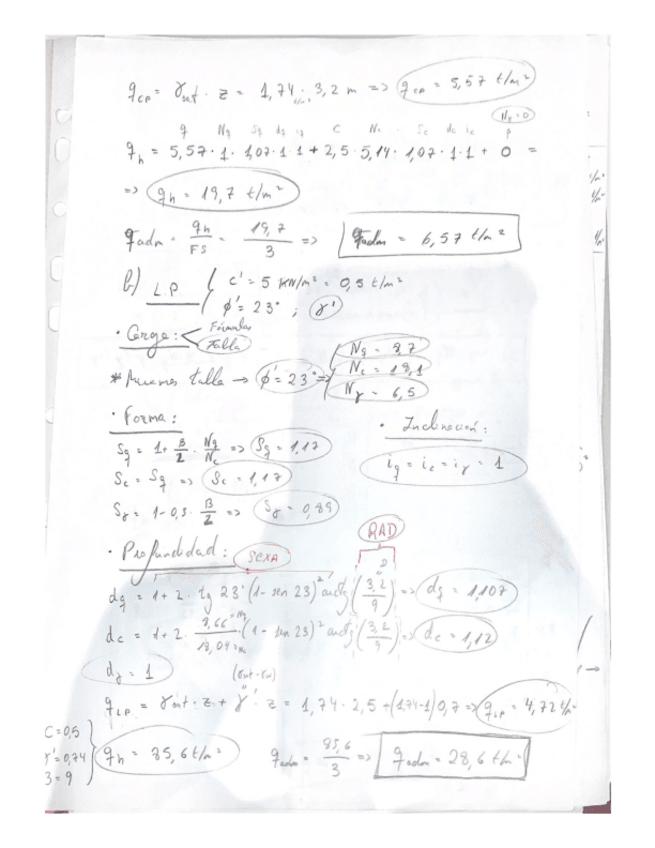 q_cp = γ_sat · z = 1,74 t/m³ · 3,2 m => q_cp = 5,57 t/m²
N_γ = 0
q N_q S_q d_q i_q C N_c S_c d_c i_c
q_h = 5,57 · 1 · 1,07 · 1 · 1 + 2,5 · 5,14 · 1,07 · 1 · 1 + 0 =
=> q_h = 19,7 t/m²
q_adm = q_h / FS = 19,7 / 3 => q_adm = 6,57 t/m²
b) L.P { c' = 5 KN/m² = 0,5 t/m²
φ' = 23° ; γ'
· Carga: < Fórmulas
Tabla
* tabla → φ' = 23° => N_q = 8,7
N_c = 18,1
N_γ = 6,5
· Forma:
S_q = 1 + B/L · N_q/N_c => S_q = 1,17
S_c = S_q => S_c = 1,17
S_γ = 1 - 0,3 · B/L => S_γ = 0,89
· Inclinación:
i_q = i_c = i_γ = 1
· Profundidad: SEXA RAD
d_q = 1 + 2 · tg 23° (1 - sen 23)² arctg (3,2/9) => d_q = 1,107
d_c = 1 + 2 · 8,66 = N_q / 18,04 = N_c (1 - sen 23)² arctg (3,2/9) => d_c = 1,12
d_γ = 1
(γsat - γw)
q_LP = γ_sat · z + γ' · z = 1,74 · 2,5 + (1,74-1) 0,7 => q_LP = 4,72 t/m²
C = 0,5
γ' = 0,74
B = 9
q_h = 85,6 t/m² q_adm = 85,6 / 3 => q_adm = 28,6 t/m²